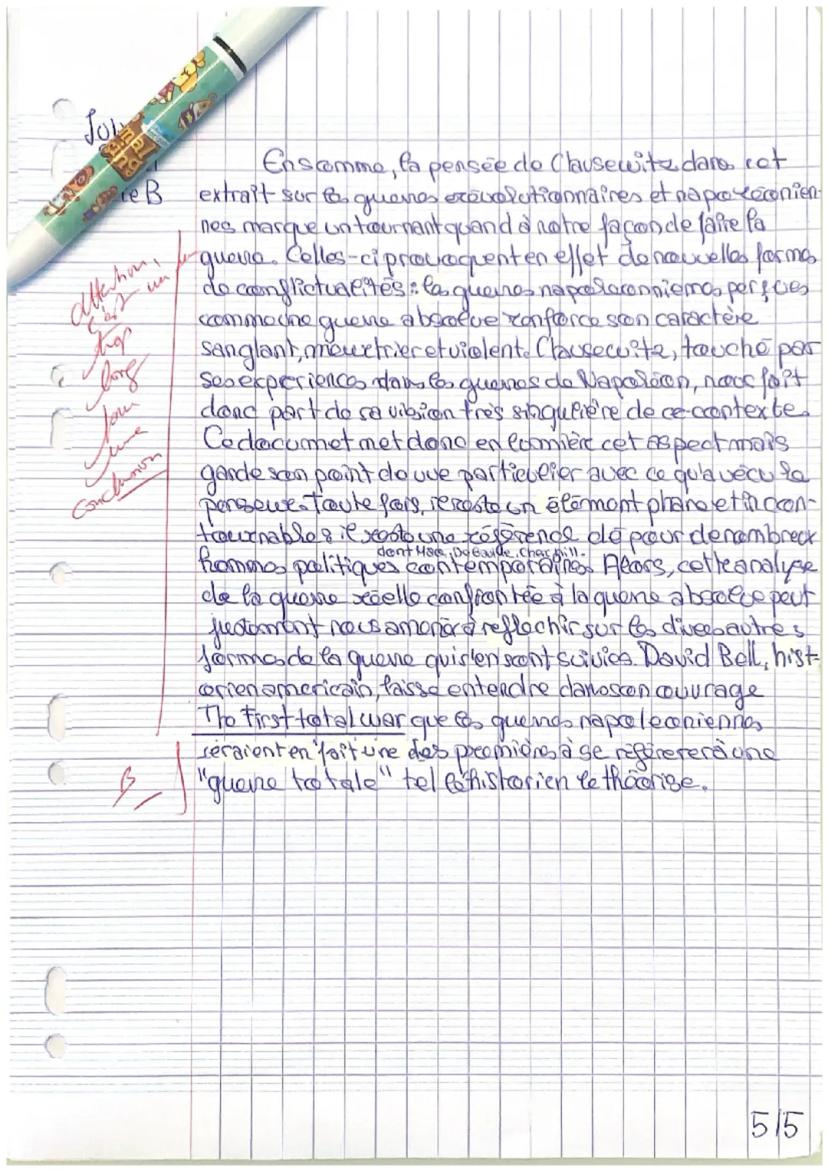 Jul
mal
sing
te B
En somme, la pensée de Clausewitz dans cet
extrait sur les guerres révolutionnaires et napoléonien-
nes marque un tournant quand à notre façon de faire la
guerre. Celles-ci provoquent en effet de nouvelles formes
de conflictualités : les guerres napoléonniennes perçues
comme une guerre absolue renforce son caractère
sanglant, meurtrier et violent. Clausewitz, touché par
ses experiences dans les guerres de Napoléon, nous fait
donc part de sa vision très singulière de ce contexte.
Ce documet met donc en lumière cet aspect mais
garde son point de vue particulier avec ce qu'a vécu le
penseur. Toute fois, il reste un élément phare et incon-
tournable : il reste une référence clé pour de nombreux
dont Mao, De Gaulle, Churchill.
hommes politiques contemporains. Alors, cette analyse
de la guerre réelle confrontée à la guerre absolue peut
justement nous amener à reflechir sur les divers autres
formes de la guerre qui s'en sont suivies. David Bell, hist-
orien americain, laisse entendre dans son ouvrage
The First total war que les guerres napoleoniennes
seraient en fait une des premières à se référerer à une
"guerre totale" tel l'historien le théorise.
attention,
c'est un peu
trop
long
pour
une
conclusion
B
5/5